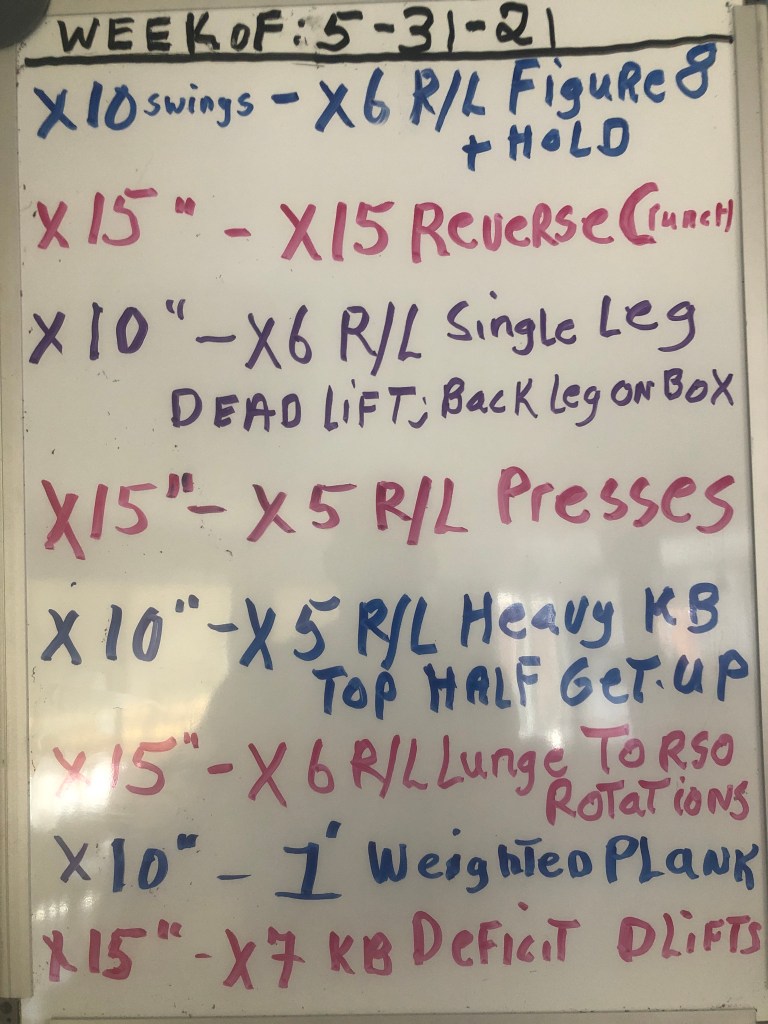 WEEK OF: 5-31-21
X10 swings - X6 R/L Figure 8
+ HOLD
X15 " - X15 Reverse Crunch
X10 " - X6 R/L Single Leg
DEAD LiFT; Back Leg ON BOX
X15 " - X5 R/L Presses
X10 " - X5 R/L Heavy KB
TOP HALF GeT-UP
X15 " - X6 R/L Lunge TORSO
ROTATIONS
X10 " - 1' WeigHTED PLANK
X15 " - X7 KB DeFiciT DLiFTS